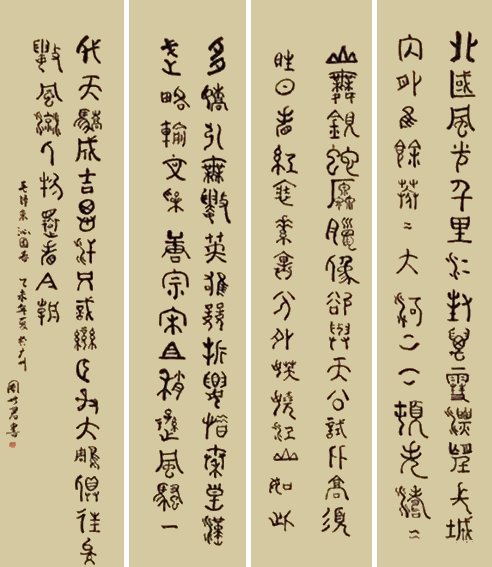 北國風光千里冰封萬雪飄望長城
内外惟餘莽〻大河上下頓失滔〻
山舞銀蛇原馳蠟象欲與天公試比高須
晴日看紅裝素裹分外妖嬈江山如此
多嬌引無數英雄競折腰惜秦皇漢
武略輸文采唐宗宋祖稍遜風騷一
代天驕成吉思汗只識彎弓射大雕俱往矣
數風流人物還看今朝
毛澤東 沁園春 乙未年夏於廣州
周 書